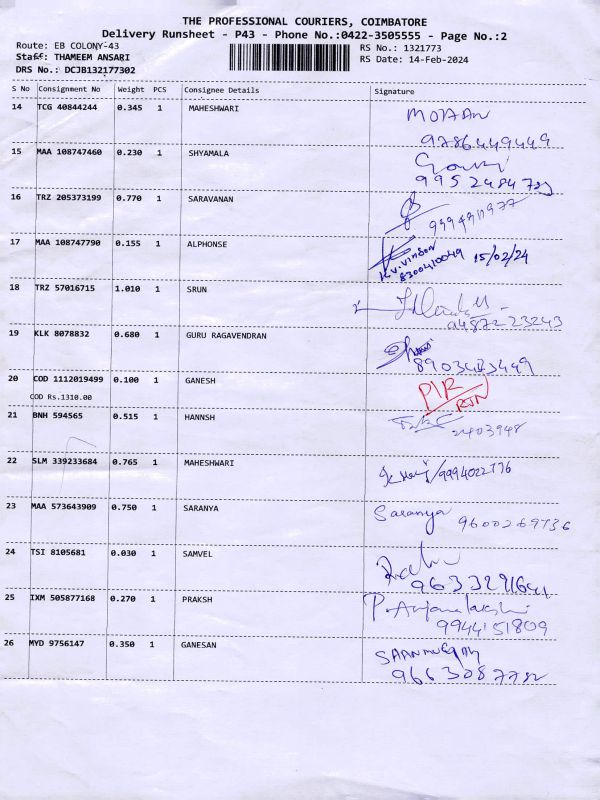 THE PROFESSIONAL COURIERS, COIMBATORE
Delivery Runsheet - P43 - Phone No.:0422-3505555 - Page No.:2
Route: EB COLONY-43
RS No.: 1321773
Staff: THAMEEM ANSARI
RS Date: 14-Feb-2024
DRS No.: DCJB132177302
S No Consignment No Weight PCS Consignee Details Signature
14 TCG 40844244 0.345 1 MAHESHWARI MOHAN
9786449449
15 MAA 108747460 0.230 1 SHYAMALA
16 TRZ 205373199 0.770 1 SARAVANAN
17 MAA 108747790 0.155 1 ALPHONSE
K.V.Vinson 15/02/24
8300410049
18 TRZ 57016715 1.010 1 SRUN
9487223243
19 KLK 8078832 0.680 1 GURU RAGAVENDRAN
20 COD 1112019499 0.100 1 GANESH
COD Rs.1310.00 RTN
21 BNH 594565 0.515 1 HANNSH
2403948
22 SLM 339233684 0.765 1 MAHESHWARI 9994022776
23 MAA 573643909 0.750 1 SARANYA Saranya 9600269736
24 TSI 8105681 0.030 1 SAMVEL
25 IXM 505877168 0.270 1 PRAKSH
9944151809
26 MYD 9756147 0.350 1 GANESAN
9663087782